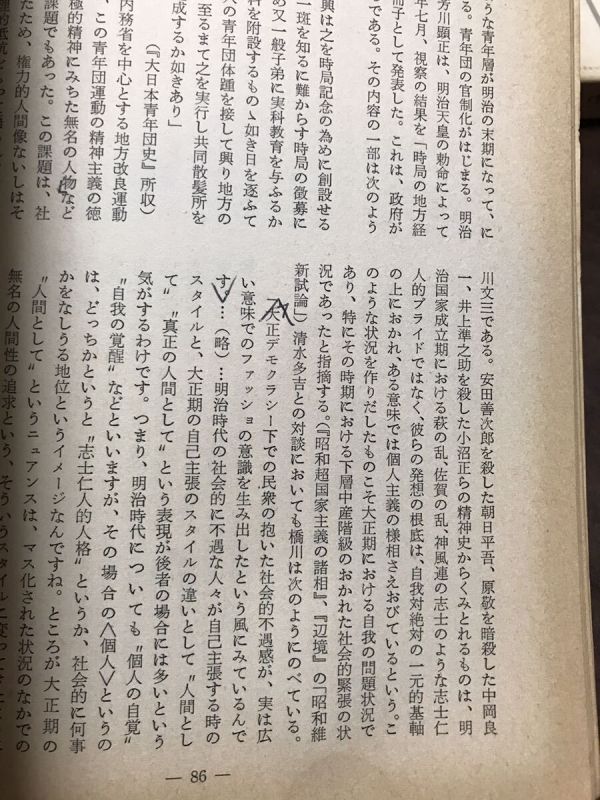 うな青年層が明治の末期になって、に
る。青年団の官制化がはじまる。明治
芳川顕正は、明治天皇の勅命によって
年七月、視察の結果を「時局の地方経
冊子として発表した。これは、政府が
である。その内容の一部は次のよう
興は之を時局記念の為めに創設せる
一斑を知るに難からす時局の徴募に
め又一般子弟に実科教育を与ふるか
料を附設するものゝ如き日を逐ふて
の青年団体踵を接して興り地方の
至るまて之を実行し共同散髪所を
成するか如きあり」
(『大日本青年団史』所収)
内務省を中心とする地方改良運動
、この青年団運動の精神主義の徳
極的精神にみちた無名の人物など
課題でもあった。この課題は、社
ため、権力的人間像ないしはそ
川文三である。安田善次郎を殺した朝日平吾、原敬を暗殺した中岡良
一、井上準之助を殺した小沼正らの精神史からくみとれるものは、明
治国家成立期における萩の乱、佐賀の乱、神風連の志士のような志士仁
人的プライドではなく、彼らの発想の根底は、自我対絶対の一元的基軸
の上におかれ、ある意味では個人主義の様相さえおびているという。こ
のような状況を作りだしたものこそ大正期における自我の問題状況で
あり、特にその時期における下層中産階級のおかれた社会的緊張の状
況であったと指摘する。(『昭和超国家主義の諸相』、『辺境』の「昭和維
新試論」)清水多吉との対談においても橋川は次のようにのべている。
大正デモクラシー下での民衆の抱いた社会的不遇感が、実は広
い意味でのファッショの意識を生み出したという風にみているんで
す。…(略)…明治時代の社会的に不遇な人々が自己主張する時の
スタイルと、大正期の自己主張のスタイルの違いとして〝人間とし
て〟〝真正の人間として〟という表現が後者の場合には多いという
気がするわけです。つまり、明治時代についても〝個人の自覚〟
〝自我の覚醒〟などといいますが、その場合の〈個人〉というの
は、どっちかというと〝志士仁人的人格〟というか、社会的に何事
かをなしうる地位というイメージなんですね。ところが大正期の
〝人間として〟というニュアンスは、マス化された状況のなかでの
無名の人間性の追求という、そういうスタイルに変って
— 86 —